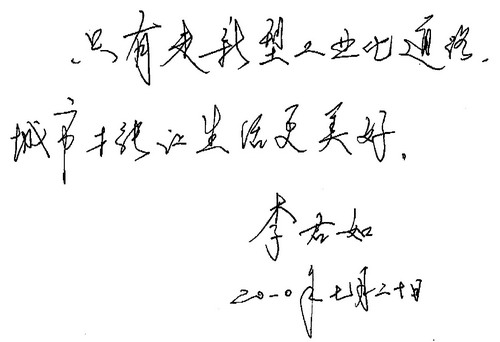 只有走新型工业化道路,
城市才能让生活更美好.
李君如
二〇一〇年七月二十日